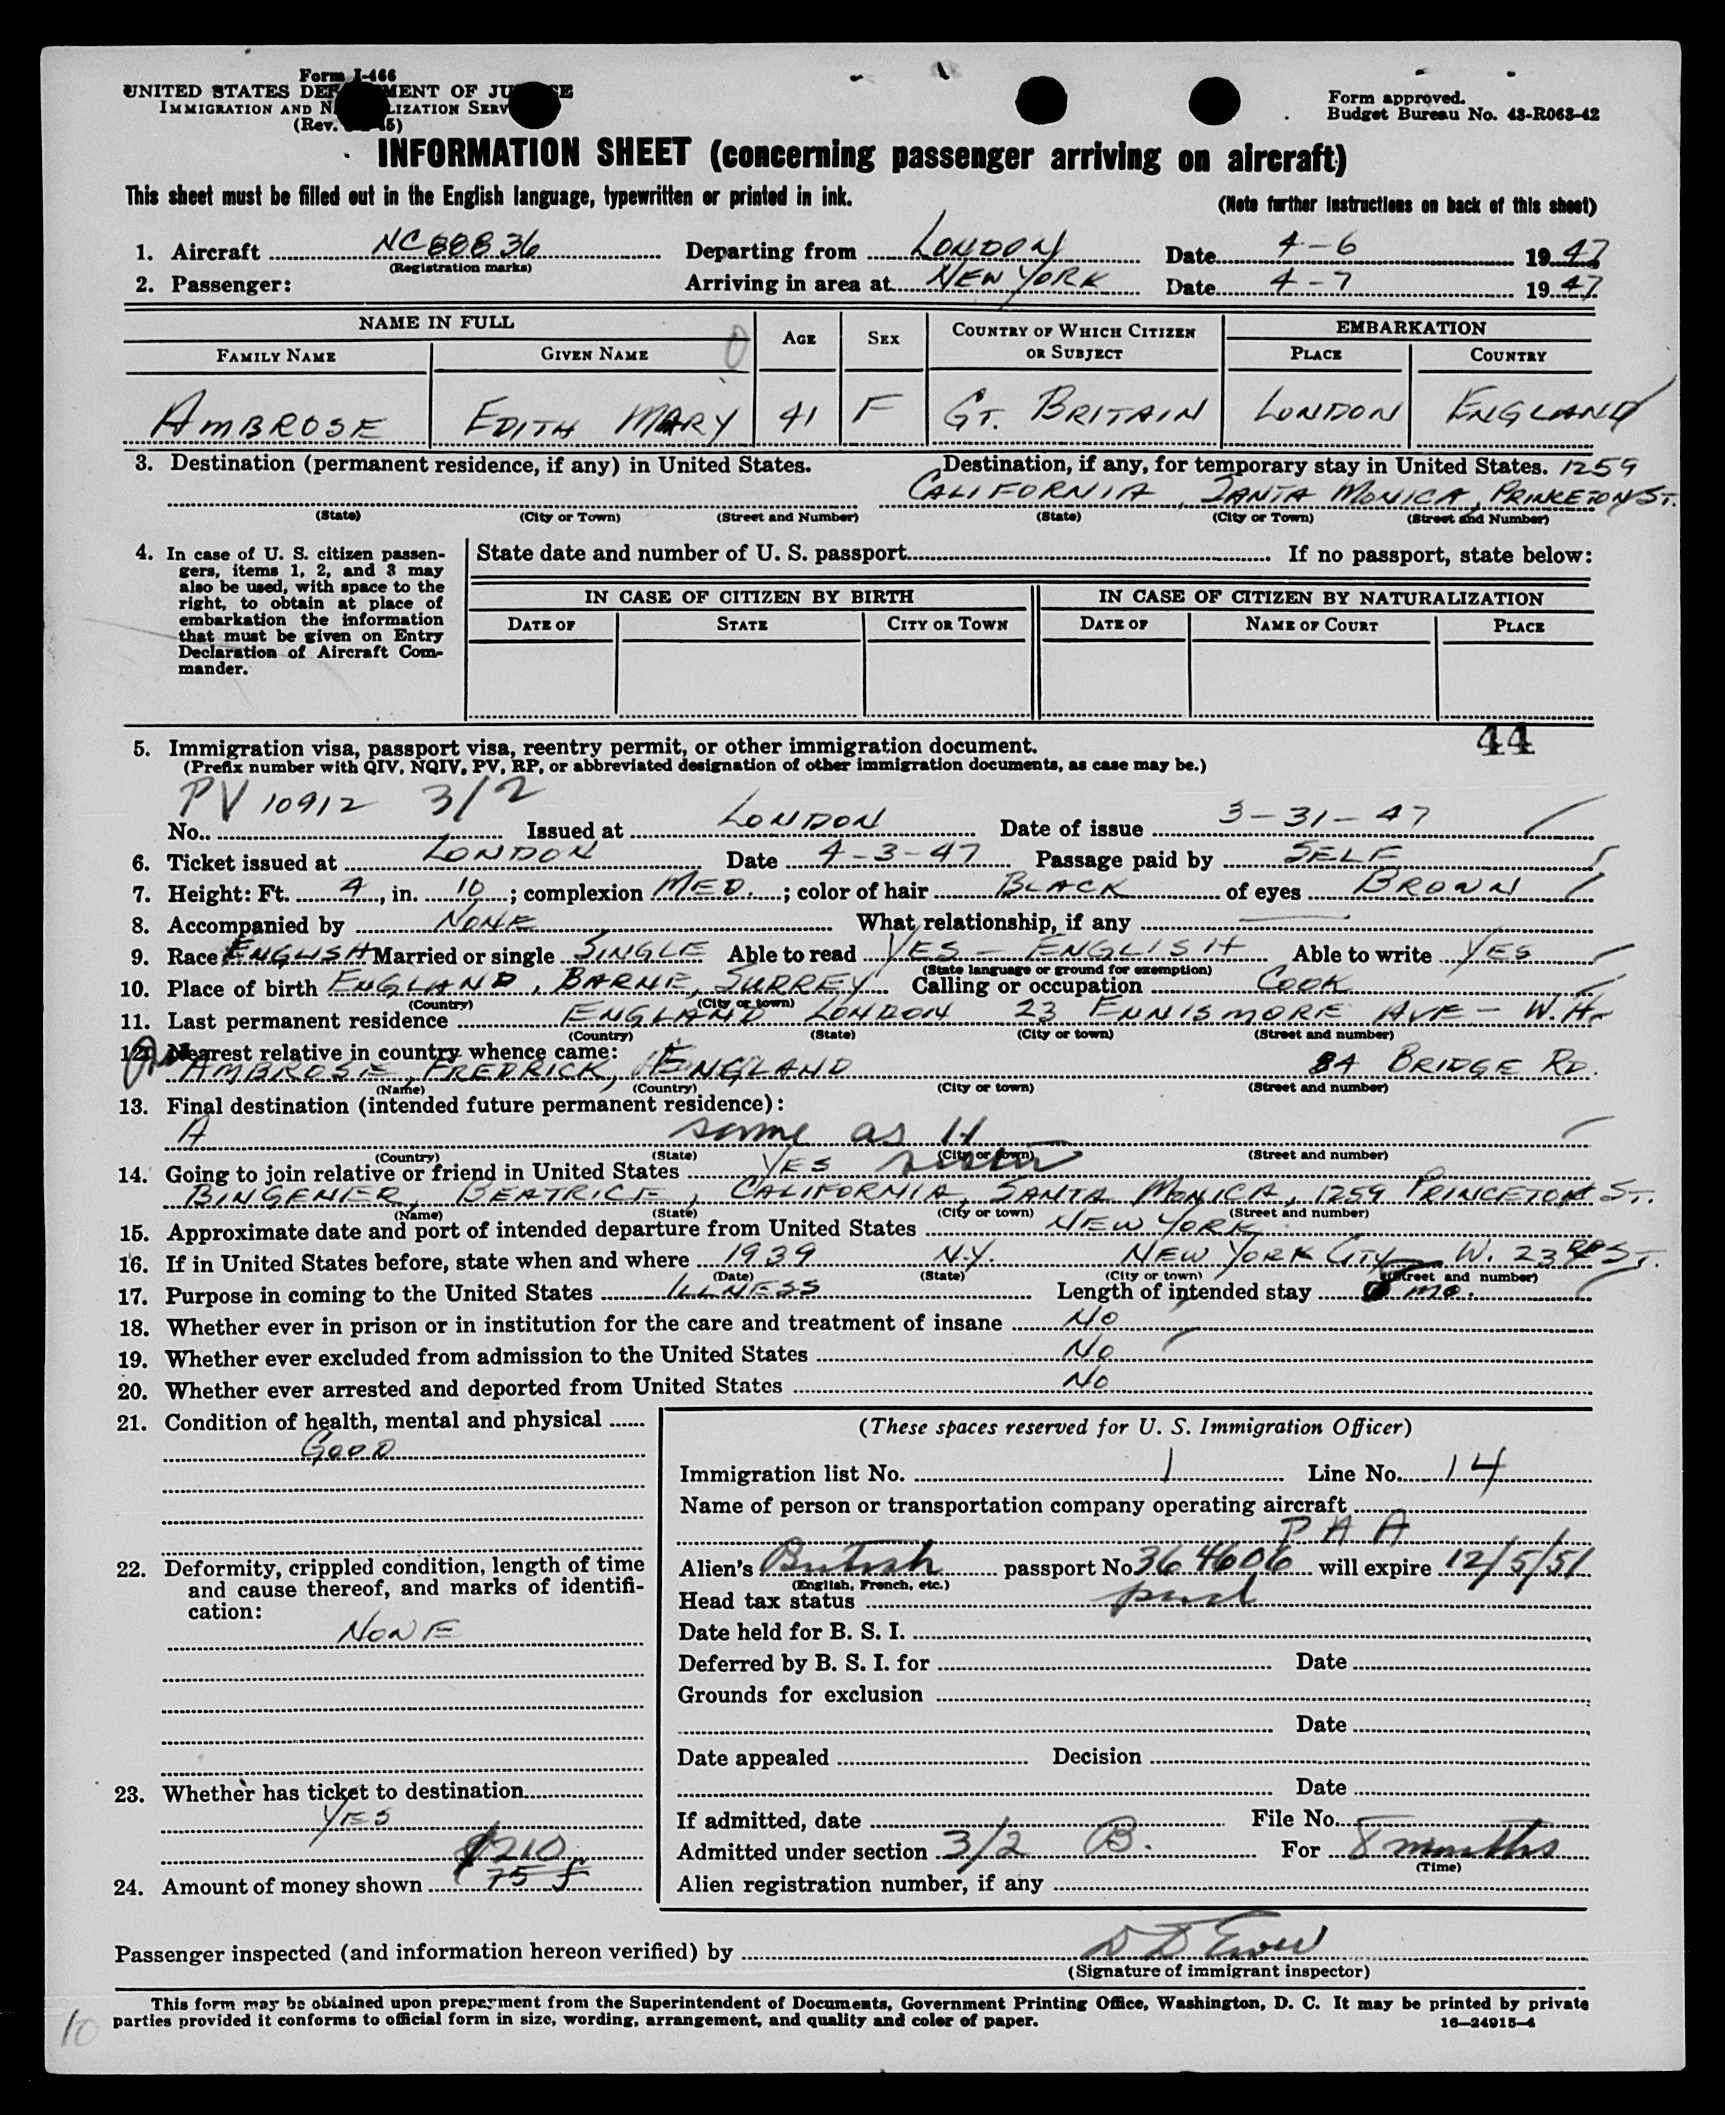 Form I-466
UNITED STATES DEPARTMENT OF JUSTICE
IMMIGRATION AND NATURALIZATION SERVICE
(Rev. 5)
Form approved.
Budget Bureau No. 43-R063-42
INFORMATION SHEET (concerning passenger arriving on aircraft)
This sheet must be filled out in the English language, typewritten or printed in ink.
(Note further instructions on back of this sheet)
1. Aircraft NC88836 Departing from LONDON Date 4-6 1947
(Registration marks)
2. Passenger: Arriving in area at NEW YORK Date 4-7 1947
NAME IN FULL AGE SEX COUNTRY OF WHICH CITIZEN OR SUBJECT EMBARKATION
FAMILY NAME GIVEN NAME PLACE COUNTRY
AMBROSE EDITH MARY 41 F GT. BRITAIN LONDON ENGLAND
3. Destination (permanent residence, if any) in United States. Destination, if any, for temporary stay in United States. 1259
CALIFORNIA, SANTA MONICA, PRINCETON ST.
(State) (City or Town) (Street and Number) (State) (City or Town) (Street and Number)
4. In case of U. S. citizen passen-
gers, items 1, 2, and 3 may
also be used, with space to the
right, to obtain at place of
embarkation the information
that must be given on Entry
Declaration of Aircraft Com-
mander.
State date and number of U. S. passport If no passport, state below:
IN CASE OF CITIZEN BY BIRTH IN CASE OF CITIZEN BY NATURALIZATION
DATE OF STATE CITY OR TOWN DATE OF NAME OF COURT PLACE
44
5. Immigration visa, passport visa, reentry permit, or other immigration document.
(Prefix number with QIV, NQIV, PV, RP, or abbreviated designation of other immigration documents, as case may be.)
PV 10912 3/2
No. Issued at LONDON Date of issue 3-31-47
6. Ticket issued at LONDON Date 4-3-47 Passage paid by SELF
7. Height: Ft. 4, in. 10; complexion MED.; color of hair BLACK of eyes BROWN
8. Accompanied by NONE What relationship, if any
9. Race ENGLISH Married or single SINGLE Able to read YES - ENGLISH Able to write YES
(State language or ground for exemption)
10. Place of birth ENGLAND, BARNE, SURREY Calling or occupation COOK
(Country) (City or town)
11. Last permanent residence ENGLAND LONDON 23 ENNISMORE AVE - W.4
(Country) (State) (City or town) (Street and number)
12. Nearest relative in country whence came:
AMBROSE, FREDRICK, ENGLAND 84 BRIDGE RD.
(Name) (Country) (City or town) (Street and number)
13. Final destination (intended future permanent residence):
A same as 11
(Country) (State) (City or town) (Street and number)
14. Going to join relative or friend in United States YES sister
BINGENER, BEATRICE, CALIFORNIA, SANTA MONICA, 1259 PRINCETON ST.
(Name) (State) (City or town) (Street and number)
15. Approximate date and port of intended departure from United States NEW YORK
16. If in United States before, state when and where 1939 N.Y. NEW YORK CITY W. 23RD ST.
(Date) (State) (City or town) (Street and number)
17. Purpose in coming to the United States ILLNESS Length of intended stay mo.
18. Whether ever in prison or in institution for the care and treatment of insane NO
19. Whether ever excluded from admission to the United States NO
20. Whether ever arrested and deported from United States NO
21. Condition of health, mental and physical
GOOD
22. Deformity, crippled condition, length of time
and cause thereof, and marks of identifi-
cation:
NONE
23. Whether has ticket to destination
YES
$210
24. Amount of money shown 75 £
(These spaces reserved for U. S. Immigration Officer)
Immigration list No. 1 Line No. 14
Name of person or transportation company operating aircraft
PAA
Alien's British passport No 364606 will expire 12/5/51
(English, French, etc.)
Head tax status paid
Date held for B. S. I.
Deferred by B. S. I. for Date
Grounds for exclusion
Date
Date appealed Decision
Date
If admitted, date File No.
Admitted under section 3/2 B. For 8 months
(Time)
Alien registration number, if any
Passenger inspected (and information hereon verified) by
(Signature of immigrant inspector)
This form may be obtained upon prepayment from the Superintendent of Documents, Government Printing Office, Washington, D. C. It may be printed by private
parties provided it conforms to official form in size, wording, arrangement, and quality and color of paper.
16—24915-4
10